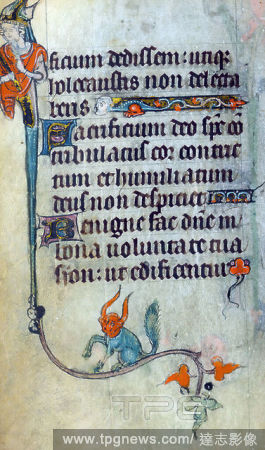 ficium dedissem: utiqȝ
holocaustis non delecta
beris
Sacrificium deo sp̄c co
tribulatus cor contri
tum et humiliatum
deus non despicies
Benigne fac dn̄e in
bona uoluntate tua
sion: ut edificentur
TPG
www.tpgnews.com / 達志影像